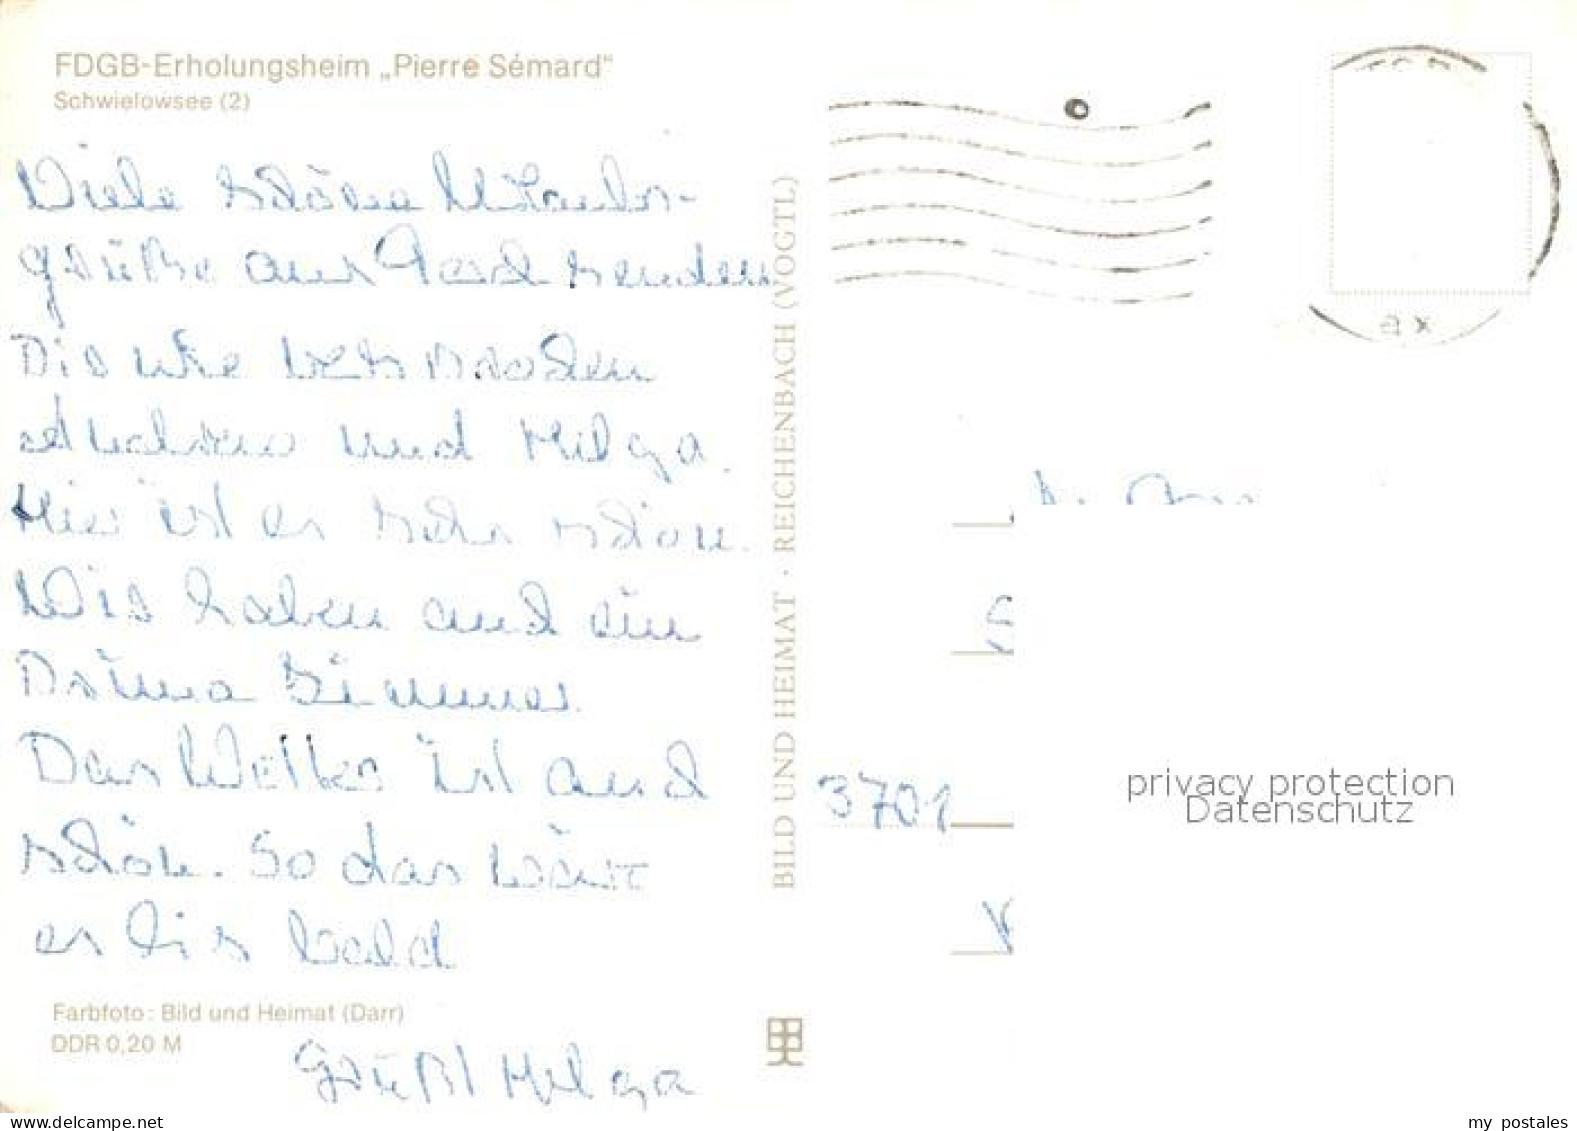 FDGB-Erholungsheim „Pierre Sémard"
Schwielowsee (2)
Viele schöne Urlaubs-
grüße aus senden
Dir wie versprochen
und Helga.
Hier ist es sehr schön.
Wir haben auch ein
Prima Zimmer
Das Wetter ist auch
schön. So das wär
es bis bald
Farbfoto: Bild und Heimat (Darr)
DDR 0,20 M
Grüßt Helga
BILD UND HEIMAT · REICHENBACH (VOGTL)
ax
3701
privacy protection
Datenschutz
my postales